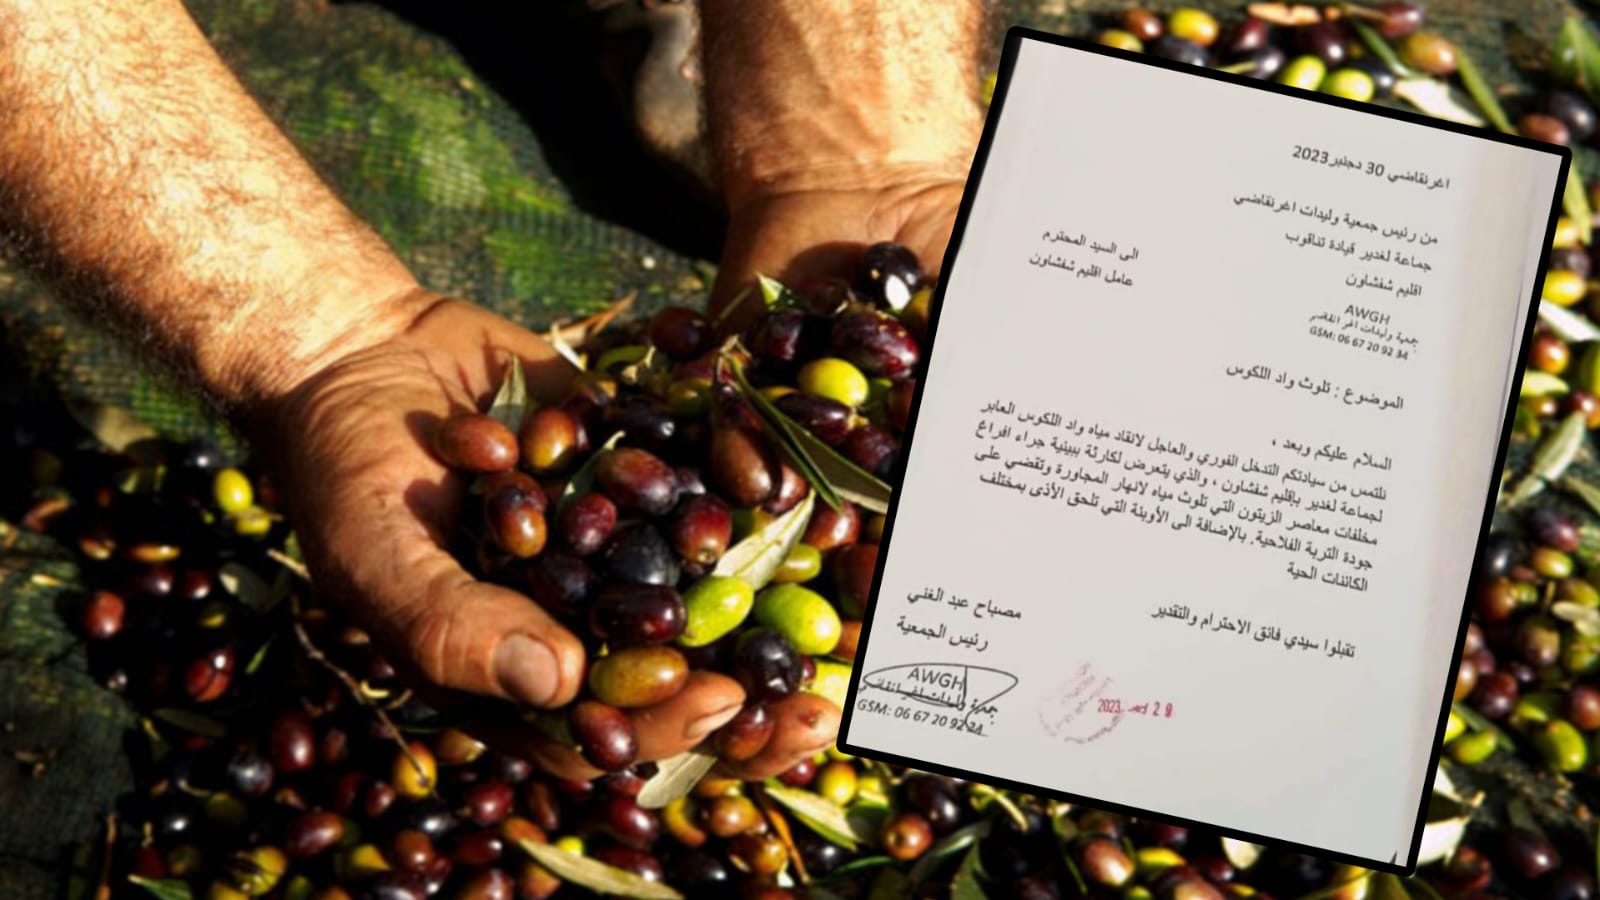 اغرنقاضي 30 دجنبر2023
من رئيس جمعية وليدات اغرنقاضي
جماعة لغدير قيادة تناقوب
اقليم شفشاون
الى السيد المحترم
عامل اقليم شفشاون
AWGH
جمعية وليدات اغرانقاضي
GSM: 06 67 20 92 34
الموضوع : تلوث واد اللكوس
السلام عليكم وبعد ،
نلتمس من سيادتكم التدخل الفوري والعاجل لانقاد مياه واد اللكوس العابر
لجماعة لغدير بإقليم شفشاون ، والذي يتعرض لكارثة بيينية جراء افراغ
مخلفات معاصر الزيتون التي تلوث مياه لانهار المجاورة وتقضي على
جودة التربة الفلاحية. بالإضافة الى الأوبئة التي تلحق الأذى بمختلف
الكائنات الحية
تقبلوا سيدي فائق الاحترام والتقدير
مصباح عبد الغني
رئيس الجمعية
AWGH
جمعية وليدات اغرانقاضي
GSM: 06 67 20 92 34
2 9 2023